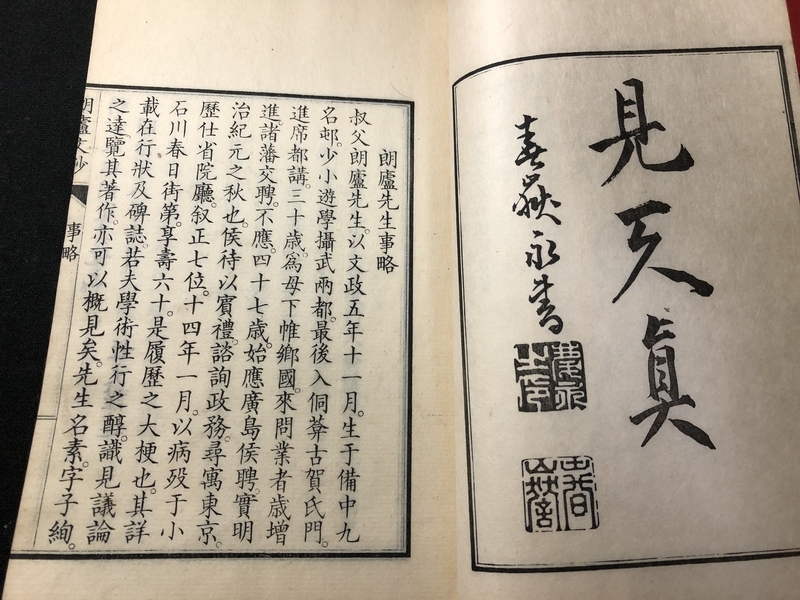 見天真
春嶽永書
慶永之印
朗廬先生事略
叔父朗廬先生。以文政五年十一月。生于備中九
名邨。少小遊學攝武兩都。最後入侗葊古賀氏門。
進席都講。三十歲。爲母下帷鄕國。來問業者歲增
進。諸藩交聘。不應。四十七歲。始應廣島侯聘。實明
治紀元之秋也。侯待以賓禮。諮詢政務。尋寓東京。
歷仕省院廳。叙正七位。十四年一月。以病歿于小
石川春日街第。享壽六十。是履歷之大梗也。其詳
載在行狀及碑誌。若夫學術性行之醇。識見議論
之達。覽其著作。亦可以概見矣。先生名素。字子絢。
朗廬文鈔
事略